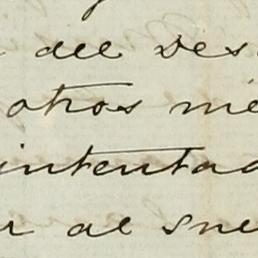 del des
otros me
intentad
r al sue